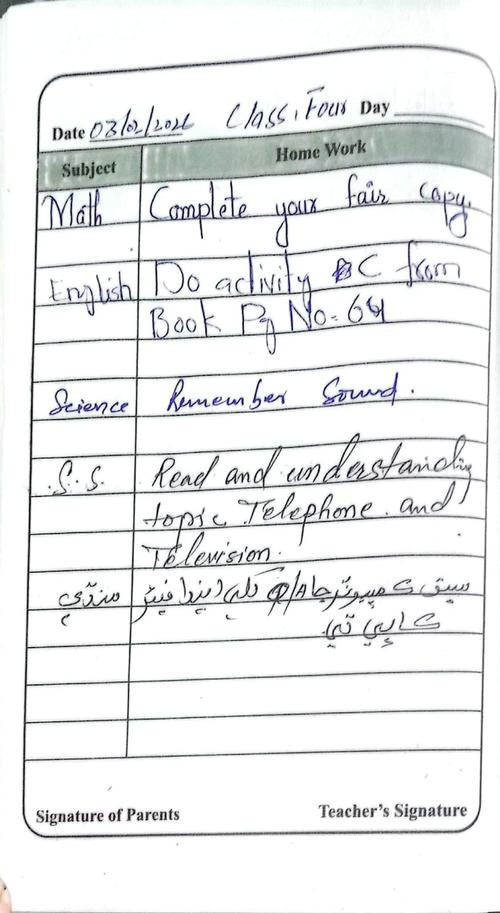 Date 03/02/2026 Class, Four Day
Subject Home Work
Math Complete your fair copy.
English Do activity C from
Book Pg No- 64
Science Remember Sound.
S.S. Read and understanding
topic Telephone and
Television.
سنڌي سبق ڪمپيوٽر جا Q/A
ڪاپي تي
Signature of Parents Teacher's Signature